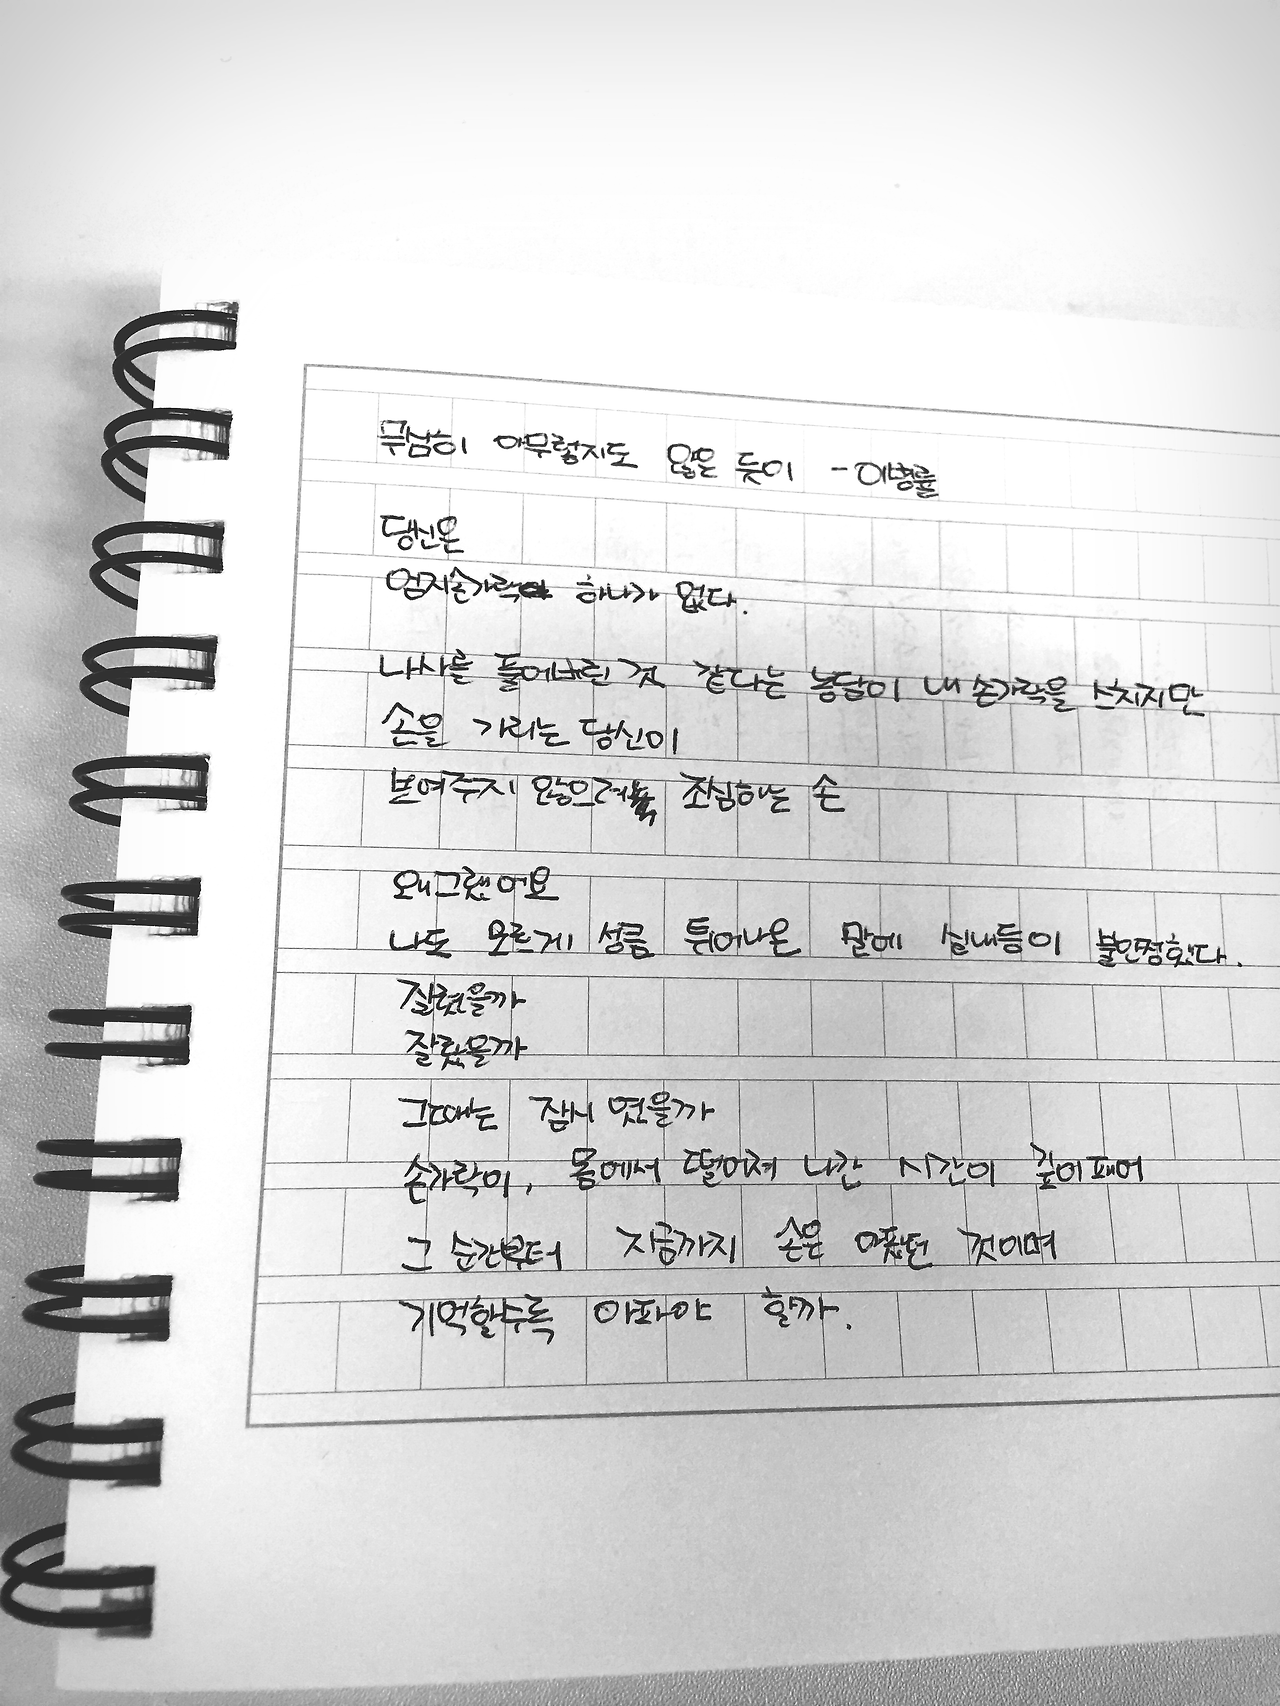 무남히 아무렇지도 않은 듯이 - 이병률
당신은
엄지손가락 하나가 없다.
나사를 풀어버린 것 같다는 농담이 내 손가락을 스치지만
손을 가리는 당신이
보여주지 않으려 조심하는 손
왜그랬어요
나도 모르게 성큼 튀어나온 말에 실내등이 불안정했다.
잘렸을까
잘랐을까
그때는 잠시 였을까
손가락이, 몸에서 떨어져 나간 시간이 깊이패여
그 순간부터 지금까지 손은 아팠던 것이며
기억할수록 아파야 할까.